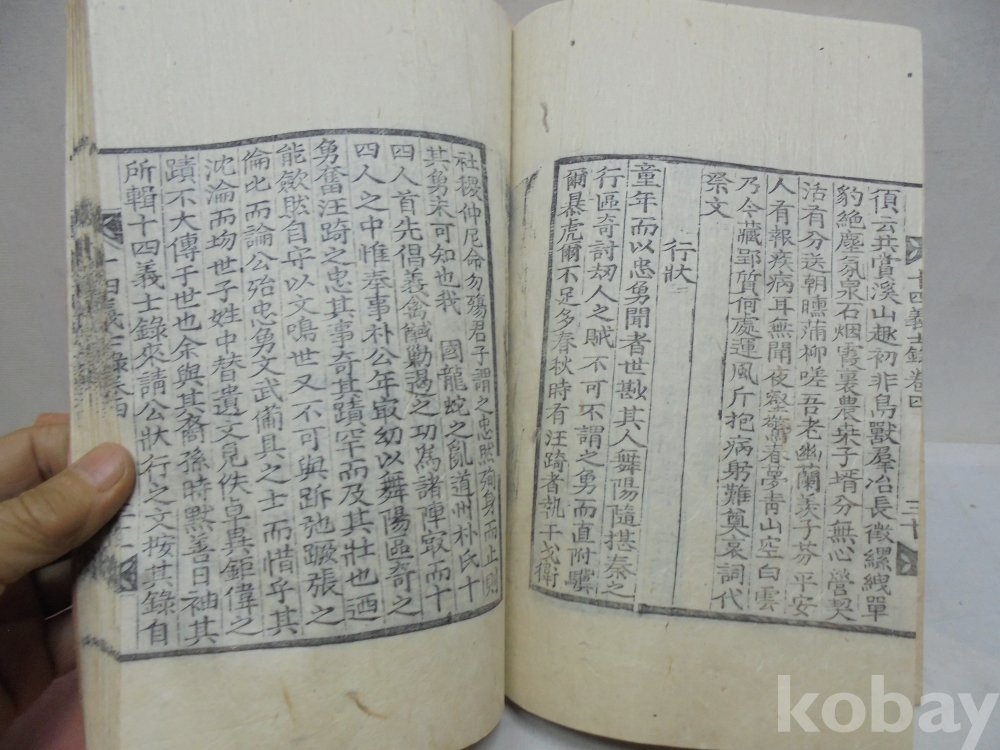 須云共賞溪山趣初非鳥獸羣冶長徵縲絏單
豹絶塵氛泉石烟霞裏農桒子壻分無心營契
活有分送朝曛蒲柳嗟吾老幽蘭羨子芬平安
人有報疾病耳無聞夜壑驚春夢靑山空白雲
乃今藏郢質何處運風斤抱病躬難奠哀詞代
祭文
行狀
童年而以忠勇聞者世尠其人舞陽隨揕秦之
行區奇討刼人之賊不可不謂之勇而直附驥
爾暴虎爾不足多春秋時有汪踦者執干戈衛
十四義士錄卷四
三十
社稷仲尼命勿殤君子謂之忠然殉身而止則
其勇未可知也我 國龍蛇之亂道州朴氏十
四人首先倡義禽馘勦遏之功爲諸陣冣而十
四人之中惟奉事朴公年冣幼以舞陽區奇之
勇奮汪踦之忠其事奇其蹟罕而及其壯也迺
能歛然自守以文鳴世又不可與跅弛蹶張之
倫比而論公殆忠勇文武備具之士而惜乎其
沈淪而圽世子姓中替遺文見佚卓異鉅偉之
蹟不大傳于世也余與其裔孫時默善日袖其
所輯十四義士錄來請公狀行之文按其錄自